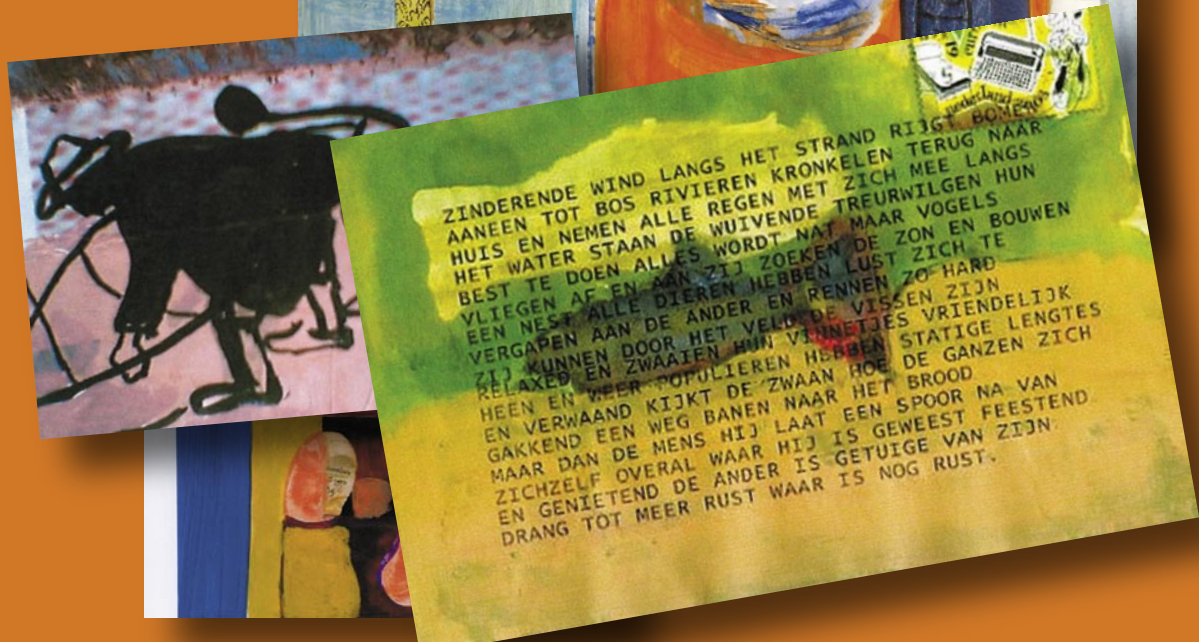 nederland
ZINDERENDE WIND LANGS HET STRAND RIJGT BOMEN
AANEEN TOT BOS RIVIEREN KRONKELEN TERUG NAAR
HUIS EN NEMEN ALLE REGEN MET ZICH MEE LANGS
HET WATER STAAN DE WUIVENDE TREURWILGEN HUN
BEST TE DOEN ALLES WORDT NAT MAAR VOGELS
VLIEGEN AF EN AAN ZIJ ZOEKEN DE ZON EN BOUWEN
EEN NEST ALLE DIEREN HEBBEN LUST ZICH TE
VERGAPEN AAN DE ANDER EN RENNEN ZO HARD
ZIJ KUNNEN DOOR HET DE VISSEN ZIJN
RELAXED EN ZWAAIEN HUN VINNETJES VRIENDELIJK
HEEN EN WEER POPULIEREN HEBBEN STATIGE LENGTES
EN VERWAAND KIJKT DE ZWAAN HOE DE GANZEN ZICH
GAKKEND EEN WEG BANEN NAAR HET BROOD
MAAR DAN DE MENS HIJ LAAT EEN SPOOR NA VAN
ZICHZELF OVERAL WAAR HIJ IS GEWEEST FEESTEND
EN GENIETEND DE ANDER IS GETUIGE VAN ZIJN
DRANG TOT MEER RUST WAAR IS NOG RUST.